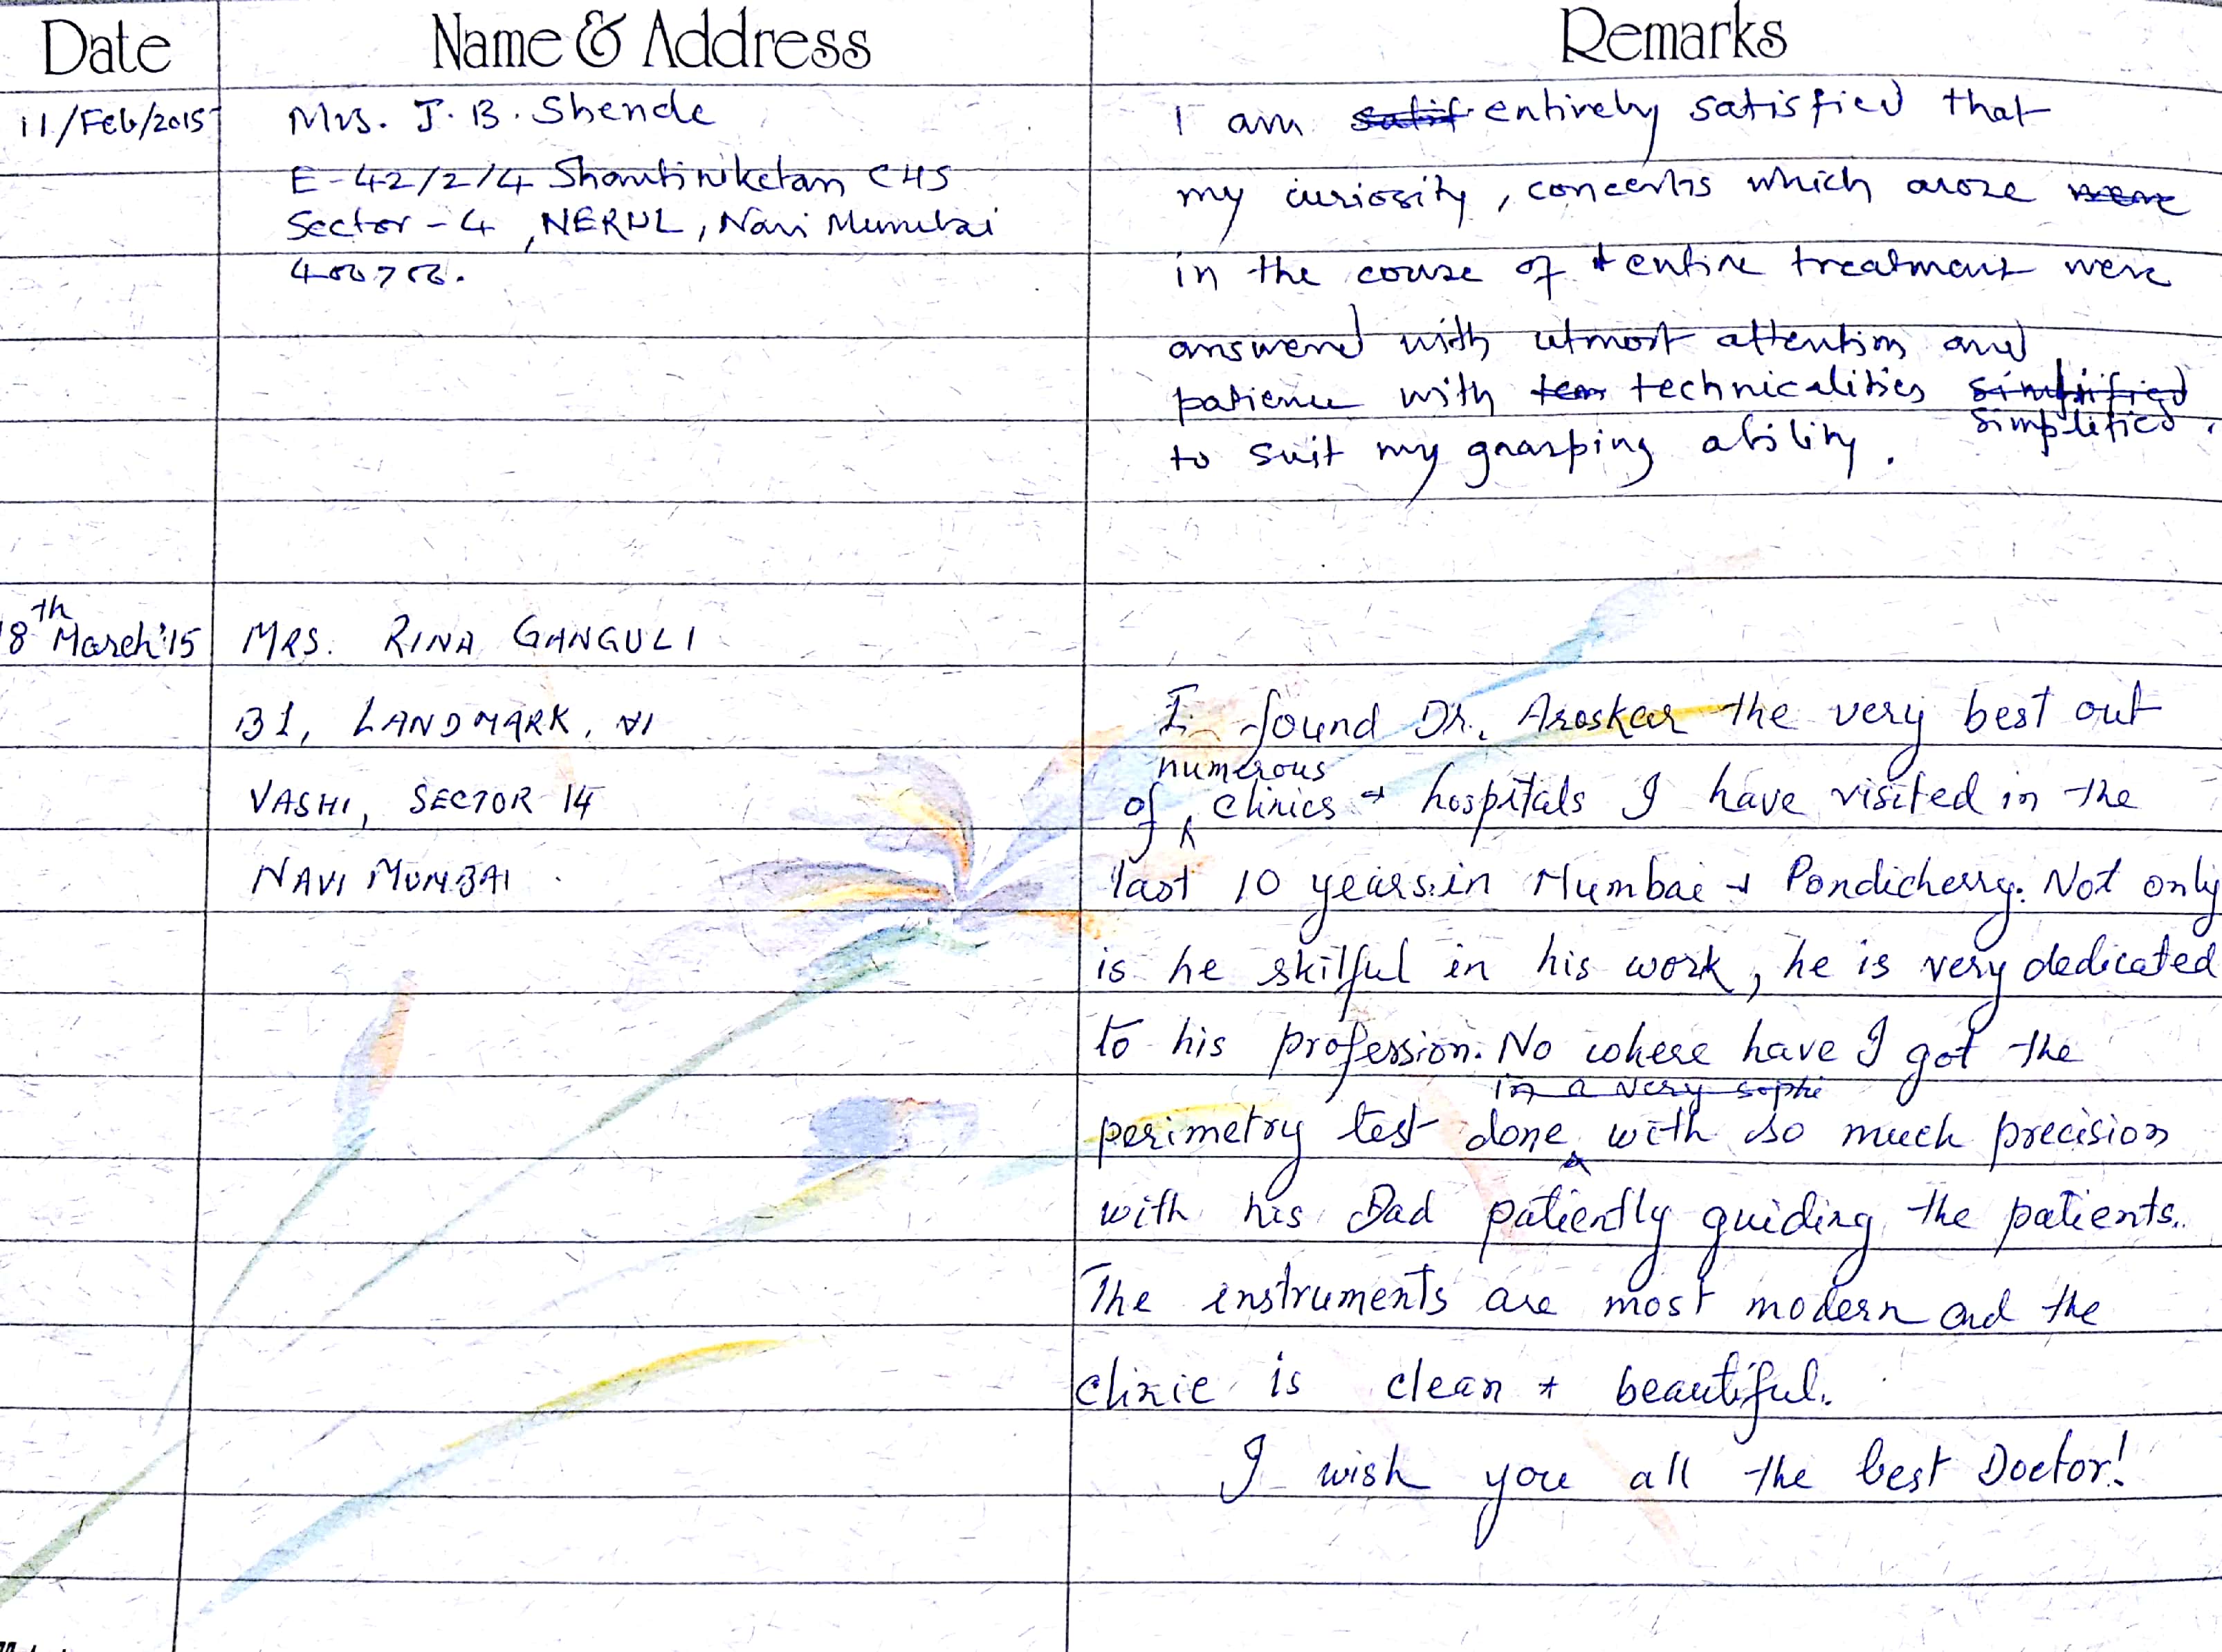 Date Name & Address Remarks
11/Feb/2015 Mrs. J. B. Shende I am satisf entirely satisfied that
E-42/2/4 Shantiniketan CHS my curiosity, concerns which arose were
Sector-4, NERUL, Navi Mumbai
400706. in the course of t entire treatment were
answered with utmost attention and
patience with tem technicalities simplified
simplified.
to suit my grasping ability.
18th March'15 MRS. RINA GANGULI
B1, LANDMARK, I found Dr. Aroskar the very best out
numerous
VASHI, SECTOR 14 of clinics & hospitals I have visited in the
NAVI MUMBAI last 10 years in Mumbai & Pondicherry. Not only
is he skilful in his work, he is very dedicated
to his profession. No where have I got the
in a very sophi
perimetry test done with so much precision
with his Dad patiently guiding the patients.
The instruments are most modern and the
clinic is clean & beautiful.
I wish you all the best Doctor!